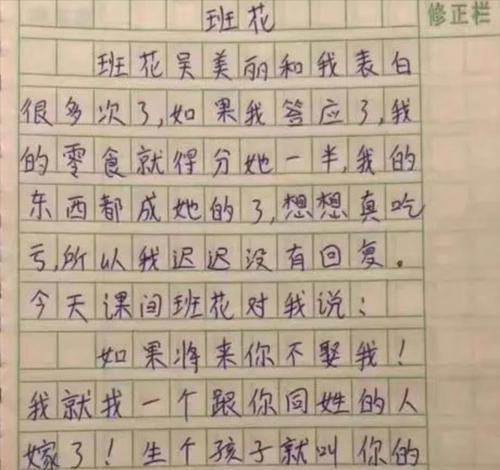 班花
修正栏
班花吴美丽和我表白
很多次了,如果我答应了,我
的零食就得分她一半,我的
东西都成她的了,想想真吃
亏,所以我迟迟没有回复。
今天课间班花对我说:
如果将来你不娶我!
我就找一个跟你同姓的人
嫁了!生个孩子就叫你的